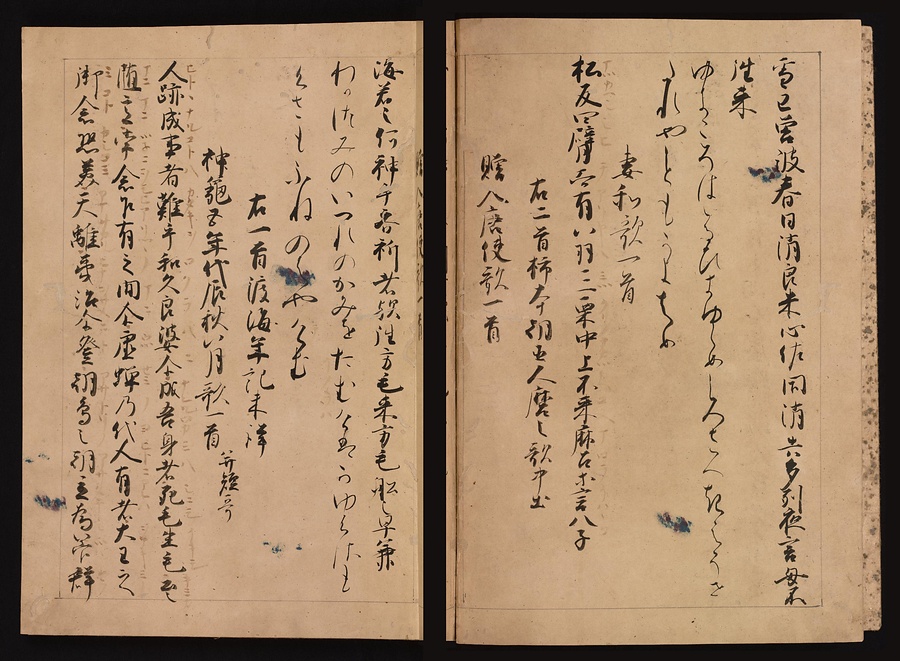 雪己曽波春日消良米心佐閇消失多列夜言母不
往来
ゆきこそははるひきゆらめこゝろさへきえうせ
たれやともかよはぬ
妻和歌一首
松反四臂而有八羽三栗中上不来麻呂等言八子
右二首柿本朝臣人麿之歌中出
贈入唐使歌一首
海若之何神乎齊祈者歟往方毛来方毛舩之早兼
わたつみのいつれのかみをたむけはかゆくさも
くさもふねのはやけむ
右一首渡海年記未詳
神龜五年戊辰秋八月歌一首 并短哥
人跡成事者難乎和久良婆尓成吾身者死毛生毛君之
随意常念乍有之間尓虚蝉乃代人有者大王之
御命恐美天離夷治尓登朝鳥之朝立為管群